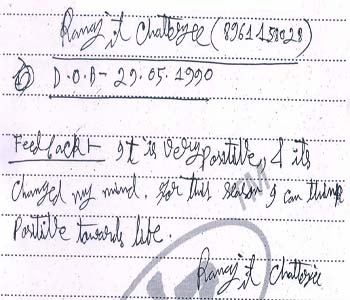 Ranajit Chatterjee (8961458028)
D.O.B- 29.05.1990
Feedback:- It is very positive, & its
changed my mind. for this reason I can think
Positive towards life.
Ranajit Chatterjee